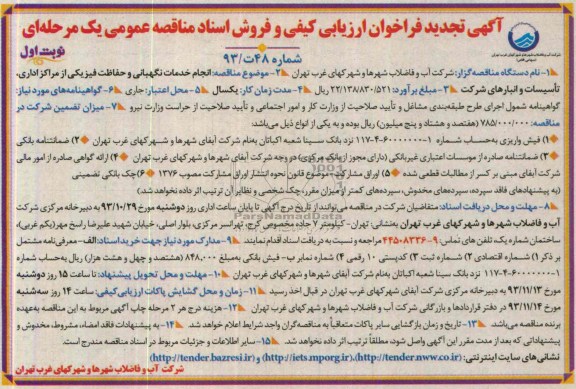 آگهی تجدید فراخوان ارزیابی کیفی و فروش اسناد مناقصه عمومی یک مرحله‌ای
شماره ۴۸ت/۹۳
نوبت اول
شرکت آب و فاضلاب شهرها و شهرکهای غرب تهران
۱-نام دستگاه مناقصه‌گزار: شرکت آب و فاضلاب شهرها و شهرکهای غرب تهران ۲- موضوع مناقصه: انجام خدمات نگهبانی و حفاظت فیزیکی از مراکز اداری،
تأسیسات و انبارهای شرکت ۳- مبلغ برآورد: ۲۲/۱۳۸/۸۳۰/۵۲۱ ریال ۴- مدت زمان کار: یکسال ۵- محل اعتبار: جاری ۶- گواهینامه‌های مورد نیاز:
گواهینامه شمول اجرای طرح طبقه‌بندی مشاغل و تأیید صلاحیت از وزارت کار و امور اجتماعی و تأیید صلاحیت از حراست وزارت نیرو ۷- میزان تضمین شرکت در
مناقصه: ۷۸۵/۰۰۰/۰۰۰ (هفتصد و هشتاد و پنج میلیون) ریال بوده و به یکی از انواع ذیل می‌باشد:
۱) فیش واریزی به‌حساب شماره ۱-۶۰۰۰۰۰۰۰-۴-۱۱۷ نزد بانک سینا شعبه اکباتان به‌نام شرکت آبفای شهرها و شهرکهای غرب تهران ۲) ضمانتنامه بانکی
۳) ضمانتنامه صادره از موسسات اعتباری غیربانکی (دارای مجوز از بانک مرکزی) در وجه شرکت آبفای شهرها و شهرکهای غرب تهران ۴) ارائه گواهی صادره از امور مالی
شرکت آبفای مبنی بر کسر از مطالبات قطعی شده ۵) اوراق مشارکت، موضوع قانون نحوه انتشار اوراق مشارکت مصوب ۱۳۷۶ ۶) چک بانکی تضمینی
(به پیشنهادهای فاقد سپرده، سپرده‌های مخدوش، سپرده‌های کمتر از میزان مقرر، چک شخصی و نظایر آن ترتیب اثر داده نخواهد شد)
۸- مهلت و محل دریافت اسناد: متقاضیان شرکت در مناقصه می‌توانند از تاریخ درج آگهی تا پایان ساعت اداری روز دوشنبه مورخ ۹۳/۱۰/۲۹ به دبیرخانه مرکزی شرکت
آب و فاضلاب شهرها و شهرکهای غرب تهران به‌نشانی: تهران - کیلومتر ۷ جاده مخصوص کرج، تهرانسر مرکزی، بلوار اصلی، خیابان شهید علیرضا راسخ مهر (یکم غربی)
ساختمان شماره یک، تلفن های تماس: ۹-۴۴۵۰۸۳۳۶ مراجعه و نسبت به دریافت اسناد اقدام نمایند ۹- مدارک مورد نیاز جهت خرید اسناد: الف- معرفی‌نامه مشتمل
بر ذکر ۱) شماره اقتصادی ۲) شماره ثبت ۳) کدپستی ۱۰ رقمی ۴) شماره نمابر ب- فیش بانکی به‌مبلغ ۸۴۸,۰۰۰ (هشتصد و چهل و هشت هزار) ریال به‌حساب شماره
۱-۶۰۰۰۰۰۰۰-۴-۱۱۷ نزد بانک سینا شعبه اکباتان به‌نام شرکت آبفای شهرها و شهرکهای غرب تهران ۱۰- مهلت و محل تحویل پیشنهاد: تا ساعت ۱۵ روز دوشنبه
مورخ ۹۳/۱۱/۱۳ به دبیرخانه مرکزی شرکت آبفای شهرها و شهرکهای غرب تهران در قبال اخذ رسید ۱۱- زمان و محل گشایش پاکات ارزیابی کیفی: ساعت ۱۴ روز سه‌شنبه
مورخ ۹۳/۱۱/۱۴ در دفتر قراردادها و بازرگانی شرکت آب و فاضلاب شهرها و شهرکهای غرب تهران ۱۲- هزینه درج هر ۲ مرحله چاپ آگهی مربوط به این مناقصه به‌عهده
برنده مناقصه می‌باشد ۱۳- تاریخ و زمان بازگشایی سایر پاکات متعاقباً به مناقصه‌گران واجد شرایط اعلام خواهد شد. ۱۴- به پیشنهادات فاقد امضاء، مشروط، مخدوش و
پیشنهاداتی که بعد از مدت مقرر این آگهی واصل شود، مطلقاً ترتیب اثر داده نخواهد شد. ۱۵- سایر اطلاعات و جزئیات مربوط در اسناد مناقصه مندرج است.
نشانی‌های سایت اینترنتی: (http://tender.nww.co.ir)، (http://iets.mporg.ir) و (http://tender.bazresi.ir)
شرکت آب و فاضلاب شهرها و شهرکهای غرب تهران
ParsNamadData